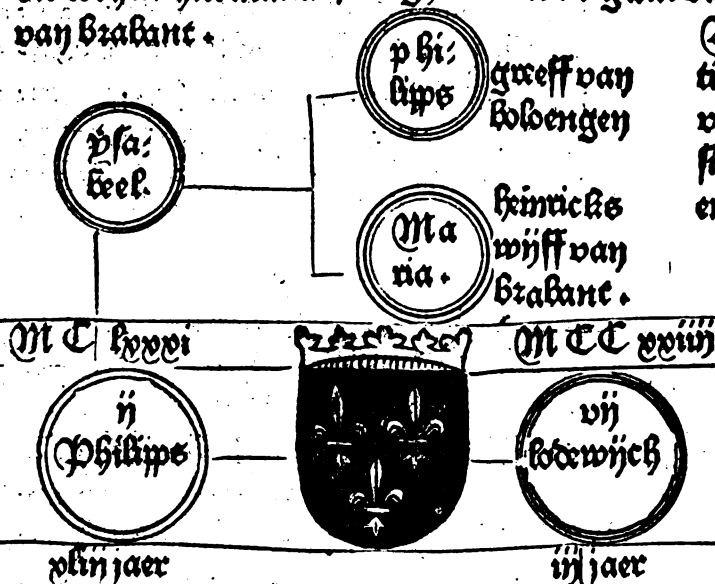 van brabant.
phi:
lipps
greeff van
boloengen
ysa:
beel.
Ma
ria.
heinricks
wijff van
brabant.
M C lxxxi
M CC xxiiij
ij
Philipps
vij
lodewijch
xliij jaer
iij jaer